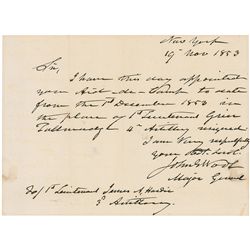 New York
19 Nov 1853
Sir,
I have this day appointed
you Aid-de-Camp to date
from the 1st December 1853 in
the place of 1st Lieutenant Grier
Tallmadge 4th Artillery resigned
I am Very respectfully
your obt. Servt.
John E Wool
Major General
To/ 1st Lieutenant James A, Hardie
3d Artillery